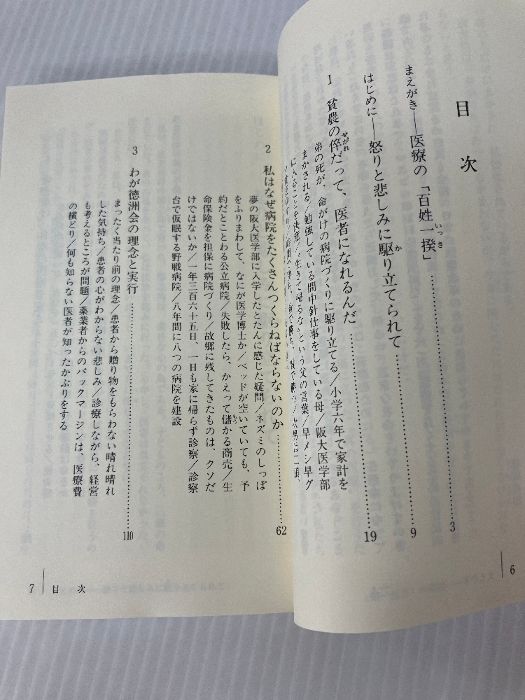 目次
まえがき――医療の「百姓一揆」 3
いっき
はじめに――怒りと悲しみに駆り立てられて 9
か
1 貧農の倅だって、医者になれるんだ 19
せがれ
弟の死が、命がけの病院づくりに駆り立てる／小学六年で家計を
まかされる／勉強している間中針仕事をしている母／阪大医学部
6
2 私はなぜ病院をたくさんつくらねばならないのか 62
夢の阪大医学部に入学したとたんに感じた疑問／ネズミのしっぽ
をふりまわして、なにが医学博士か／ベッドが空いていても、予
約だとことわる公立病院／失敗したら、かえって儲かる商売／生
命保険金を担保に病院づくり／故郷に残してきたものは、クソだ
けではないか／一年三百六十五日、一日も家に帰らず診察／診察
台で仮眠する野戦病院／八年間に八つの病院を建設
3 わが徳洲会の理念と実行 110
まったく当たり前の理念／患者から贈り物をもらわない晴れ晴れ
した気持ち／患者の心がわからない悲しみ／診療しながら、経営
も考えるところが問題／薬業者からのバックマージンは、医療費
の横どり／何も知らない医者が知ったかぶりをする
7 目次